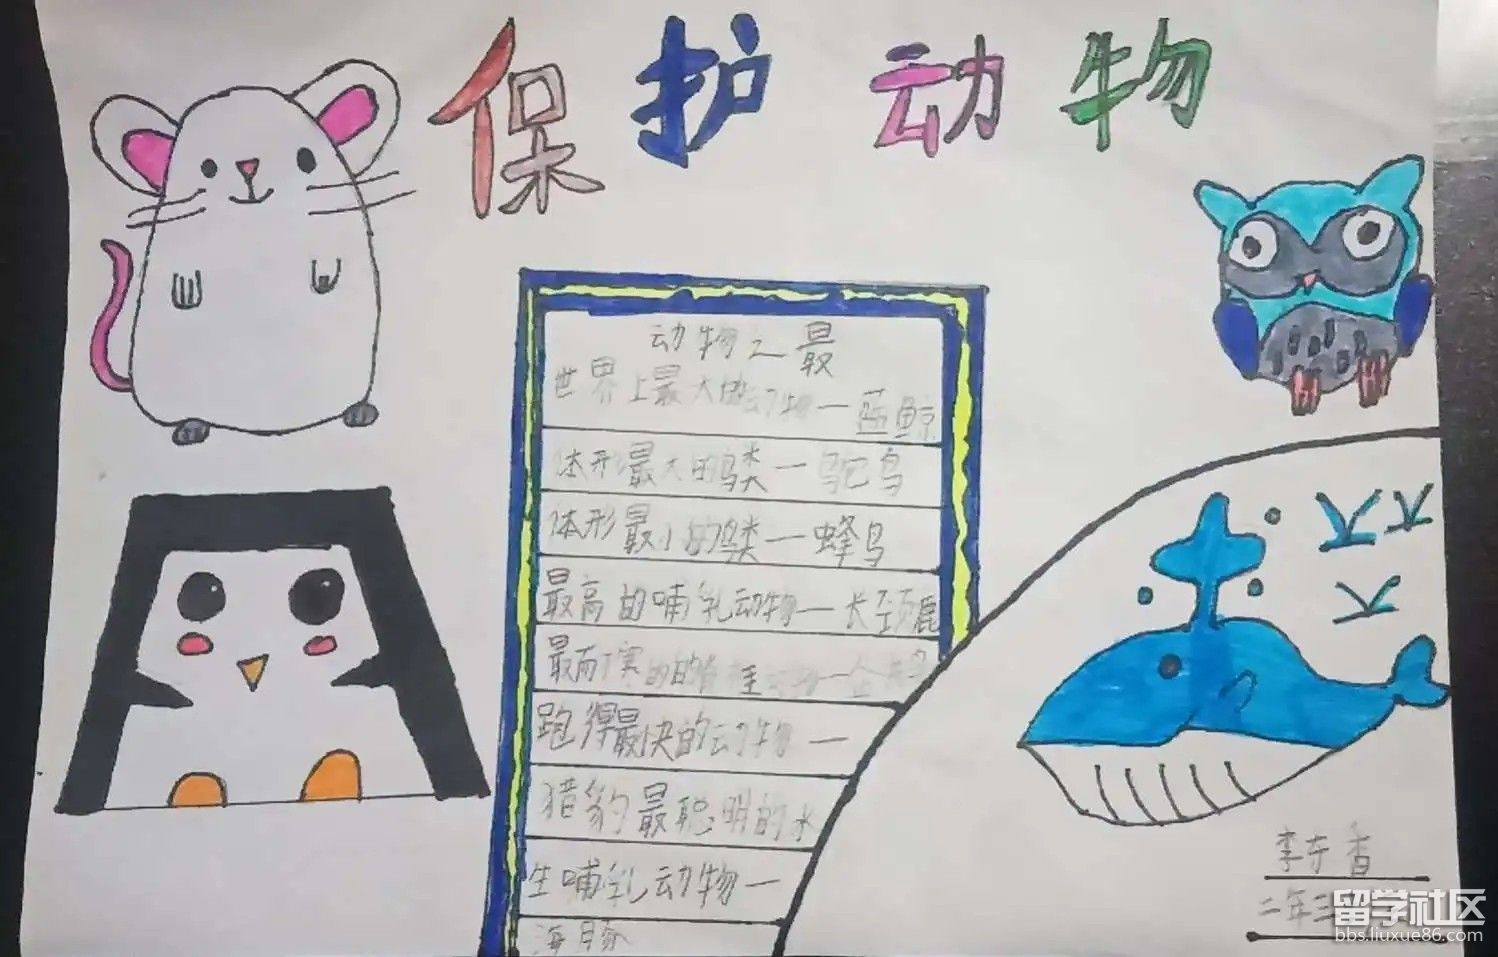 保护动物
动物之最
世界上最大的动物一蓝鲸
体形最大的鸟类一鸵鸟
体形最小的鸟类一蜂鸟
最高的哺乳动物一长颈鹿
最耐寒的
跑得最快的动物一
猎豹最聪明的水
生哺乳动物一
海豚
李 香
二年三
留学社区
bbs.liuxue86.com